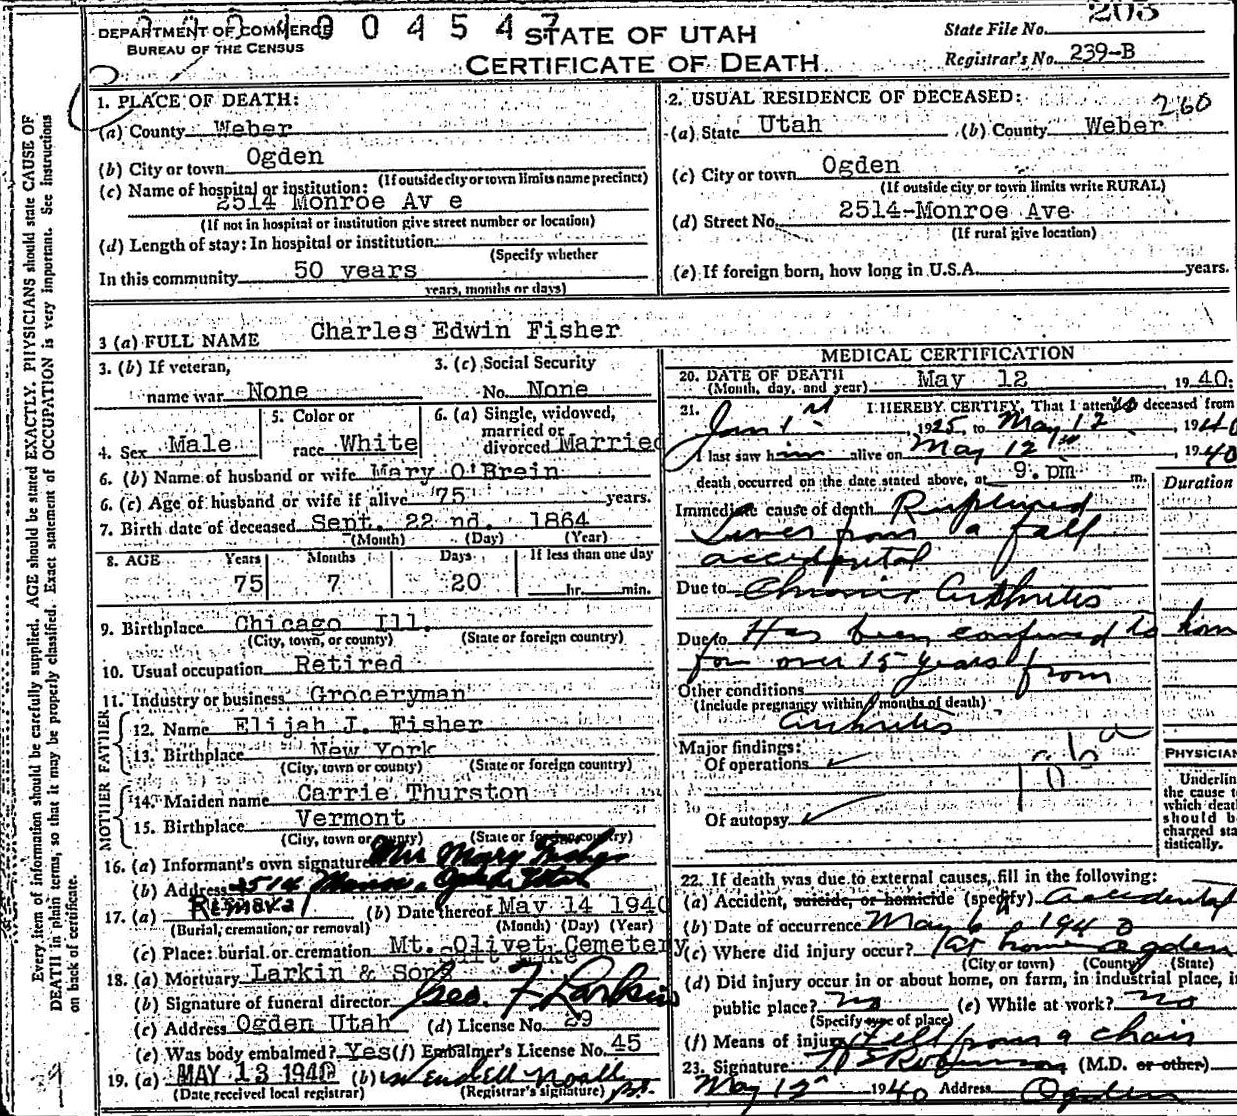 DEPARTMENT OF COMMERCE
BUREAU OF THE CENSUS
0 0 4 5 4
STATE OF UTAH
CERTIFICATE OF DEATH
State File No. 203
Registrar's No. 239-B
Every item of information should be carefully supplied. AGE should be stated EXACTLY. PHYSICIANS should state CAUSE OF
DEATH in plain terms, so that it may be properly classified. Exact statement of OCCUPATION is very important. See instructions
on back of certificate.
1. PLACE OF DEATH:
(a) County Weber
(b) City or town Ogden
(If outside city or town limits name precinct)
(c) Name of hospital or institution:
2514 Monroe Av e
(If not in hospital or institution give street number or location)
(d) Length of stay: In hospital or institution
(Specify whether
In this community 50 years
years, months or days)
2. USUAL RESIDENCE OF DECEASED: 260
(a) State Utah (b) County Weber
(c) City or town Ogden
(If outside city or town limits write RURAL)
(d) Street No. 2514-Monroe Ave
(If rural give location)
(e) If foreign born, how long in U.S.A. years.
3 (a) FULL NAME Charles Edwin Fisher
3. (b) If veteran,
name war None
3. (c) Social Security
No. None
4. Sex Male
5. Color or
race White
6. (a) Single, widowed,
married or
divorced Married
6. (b) Name of husband or wife Mary O'Brein
6. (c) Age of husband or wife if alive 75 years.
7. Birth date of deceased Sept. 22 nd. 1864
(Month) (Day) (Year)
8. AGE Years Months Days If less than one day
75 7 20 hr. min.
9. Birthplace Chicago Ill.
(City, town, or county) (State or foreign country)
10. Usual occupation Retired
11. Industry or business Groceryman
FATHER
12. Name Elijah J. Fisher
13. Birthplace New York
(City, town or county) (State or foreign country)
MOTHER
14. Maiden name Carrie Thurston
15. Birthplace Vermont
(City, town or county) (State or foreign country)
16. (a) Informant's own signature Mrs Mary Fisher
(b) Address 2514 Monroe Ogden Utah
17. (a) Removal (b) Date thereof May 14 1940
(Burial, cremation, or removal) (Month) (Day) (Year)
(c) Place: burial or cremation Mt. Olivet Cemetery
Salt Lake
18. (a) Mortuary Larkin & Sons
(b) Signature of funeral director Geo. F Larkin
(c) Address Ogden Utah (d) License No. 29
(e) Was body embalmed? Yes (f) Embalmer's License No. 45
19. (a) MAY 13 1940 (b) Wendell Noall
(Date received local registrar) (Registrar's signature)
MEDICAL CERTIFICATION
20. DATE OF DEATH
(Month, day, and year) May 12 1940
21. I HEREBY CERTIFY, That I attended deceased from
Jan 1st 1925, to May 12, 1940
I last saw him alive on May 12th, 1940
death occurred on the date stated above, at 9. pm m.
Duration
Immediate cause of death Ruptured
Liver from a fall
accidental
Due to Chronic Arthritis
Due to Has been confined to hom
for over 15 years from
Other conditions
(Include pregnancy within 3 months of death)
Arthritis
Major findings:
Of operations
Of autopsy
PHYSICIAN
Underlin
the cause t
which deat
should b
charged sta
tistically.
22. If death was due to external causes, fill in the following:
(a) Accident, suicide, or homicide (specify) Accidental
(b) Date of occurrence May 1940
(c) Where did injury occur? at home Ogden
(City or town) (County) (State)
(d) Did injury occur in or about home, on farm, in industrial place, i
public place? no (e) While at work? no
(Specify type of place)
(f) Means of injury Fell from a chair
23. Signature (M.D. or other)
May 12 1940 Address Ogden